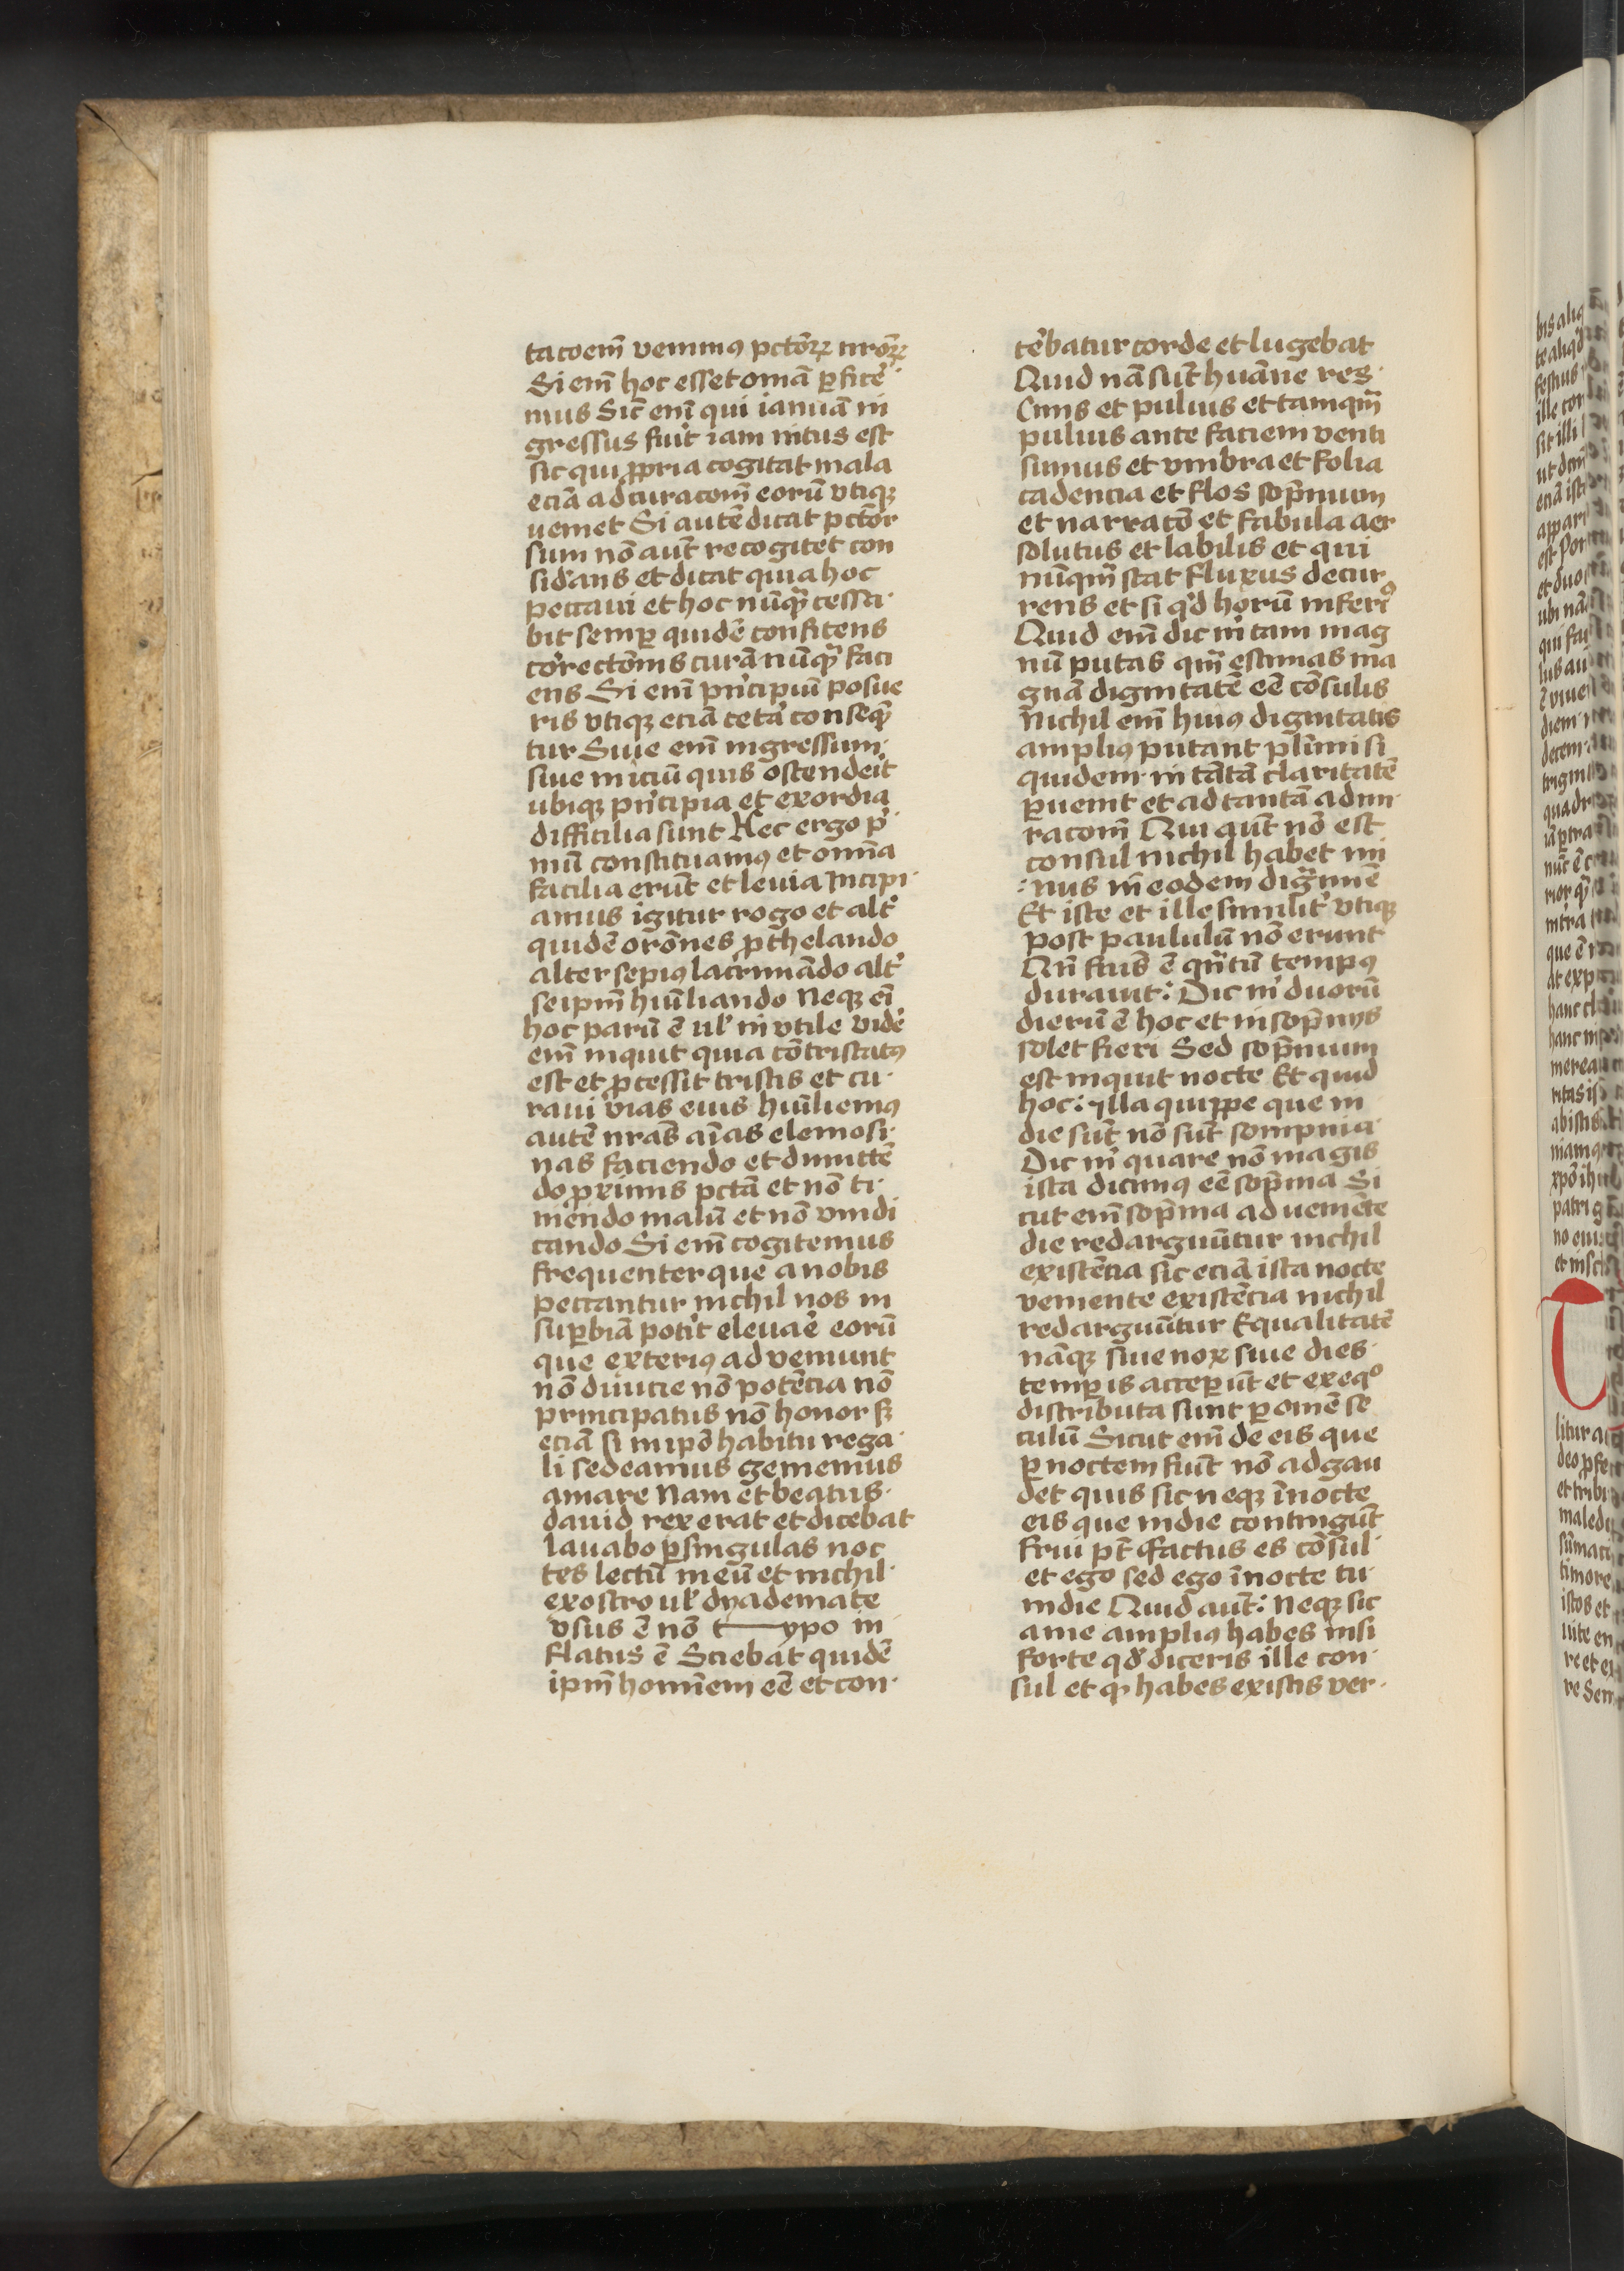 tacoem̄ venimꝰ pctōꝝ nrōꝝ
Si em̄ hoc esset omā ꝑfice᷑
mus Sic̄ em̄ qui ianuā in
gressus fuit iam intus est
sic qui ꝓpria cogitat mala
eciā ad curacom̄ eorū vtiqꝫ
veniet Si autē dicat pctōr
sum nō aut̄ recogitet con
sid᷑ans et dicat quia hoc
peccaui et hoc nūqͣ cessa·
bit semꝑ quidē confitens
cor᷑ectōnis curā nūqͣ faci
ens Si em̄ pͥncipiū posue
ris vtiqꝫ eciā cetaͬ conseqͣ
tur Siue em̄ ingressum·
siue iniciū quis ostenderit
ubiqꝫ pͥncipia et exordia
difficilia sunt Hec ergo pͥ·
mū constituamꝰ et omīa
facilia erūt et leuia Incipi·
amus igitur rogo et alt᷑
quidē orōnes ꝓthelando
alter sepiꝰ lacrimādo alt᷑
seipm̄ huīliando Neqꝫ eī
hoc parū ē ul᷑ invtile vide᷑
em̄ inquit quia cōtristatꝰ
est et ꝓcessit tristis et cu·
raui vias eius huīliemꝰ
autē nrās aīas elemosi·
nas faciendo et dimittē
do ꝓximis pctā et nō ti·
mendo malū et nō vindi
cando Si em̄ cogitemus
frequenter que a nobis
peccantur nichil nos in
suꝑbiā poterit eleuare eorū
que exteriꝰ adveniunt
nō diuicie nō potēcia nō
principatus nō honor sꝫ
eciā si in ipō habitu rega·
li sedeamus gememus
amare Nam et beatus·
dauid rex erat et dicebat
lauabo ꝑ singulas noc
tes lectū meū et nichil·
ex ostro ul᷑ dyademate
vsus ē nō t—ypo in
flatus ē Sciebat quidē
ipm̄ hominem eē et con·
te᷑batur corde et lugebat
Quid nā sūt huāne res·
Cinis et puluis et tamqm̄
puluis ante faciem venti
fumus et vmbra et folia
cadencia et flos sop̄nium
et narratō et fabula aer
solutus et labilis et qui
nūqm̄ stat fluxus decur
rens et si qͥd horū inferiꝰ
Quid em̄ dic mͥ tam mag
nū putas qm̄ estimas ma
gnā dignitatē eē cōsulis
Nichil em̄ huiꝰ dignitatis
ampliꝰ putant plīmi si
quidem in tātā claritatē
ꝑuenit et ad tantā admi·
racom̄ Qui aut̄ nō est
consul nichil habet mi
:nus in eodem digͣmīe
Et iste et ille similit᷑ vtiqꝫ
post paululū nō erunt
An̄ facis̄ ē qn̄tū tempꝰ
durauit: Dic mͥ duorū
dierū ē hoc et in sop̄nijs
solet fieri Sed sop̄nium
est inquit nocte Et quid
hoc: ylla quippe que in
die sūt nō sūt sompnia·
Dic mͥ quare nō magis
ista dicimꝰ eē sop̄nia Si
cut em̄ sop̄nia adueniēte
die redarguūtur nichil
existēcia sic eciā ista nocte
veniente existēcia nichil
redarguūtur Equalitatē
nāqꝫ siue nox siue dies·
temꝑis acceꝑūt et ex eqͦ
distributa sunt ꝑ omē se
culū Sicut em̄ de eis que
ꝑ noctem fiūt nō adgau
det quis sic neqꝫ ī nocte
eis que in die contingūt
frui pt̄ Factus es cōsul·
et ego sed ego ī nocte tu·
in die Quid aut̄: Neqꝫ sic
a me ampliꝰ habes nisi
forte qd᷑ diceris ille con·
sul et qͥ habes existis ver·